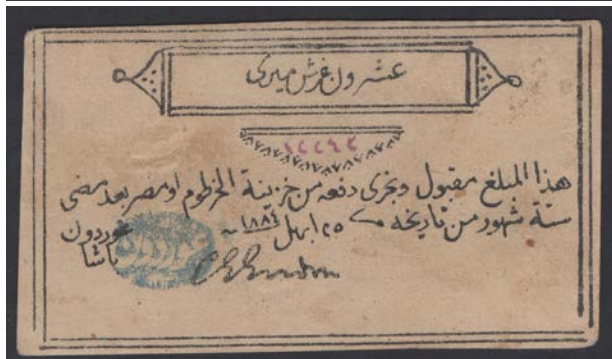 عشرون غرش ميرى
هذا المبلغ مقبول ويجرى دفعه من خزينة الخرطوم او مصر بعد مضى
ستة شهور من تاريخه ٢٥ ابريل ١٨٨٤
غوردون
باشا